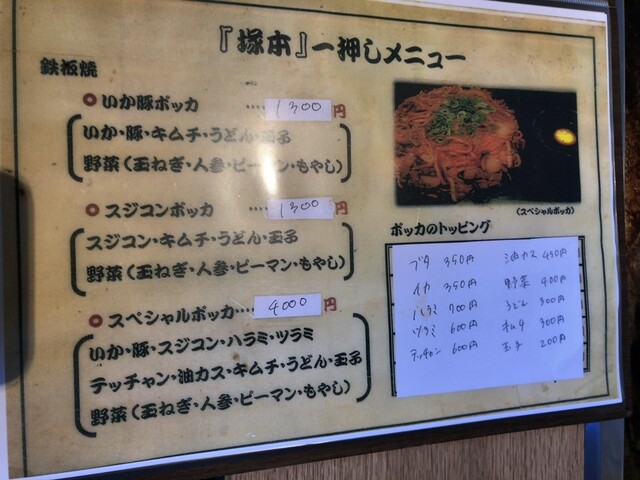 『塚本』一押しメニュー
鉄板焼
いか豚ボッカ ‥‥1300円
いか・豚・キムチ・うどん・玉子
野菜(玉ねぎ・人参・ピーマン・もやし)
スジコンボッカ ‥‥1300円
スジコン・キムチ・うどん・玉子
野菜(玉ねぎ・人参・ピーマン・もやし)
スペシャルボッカ‥‥4000円
いか・豚・スジコン・ハラミ・ツラミ
テッチャン・油カス・キムチ・うどん・玉子
野菜(玉ねぎ・人参・ピーマン・もやし)
(スペシャルボッカ)
ボッカのトッピング
ブタ 350円
イカ 350円
ハラミ 700円
ツラミ 600円
テッチャン 600円
油カス 450円
野菜 400円
うどん 300円
キムチ 300円
玉子 200円